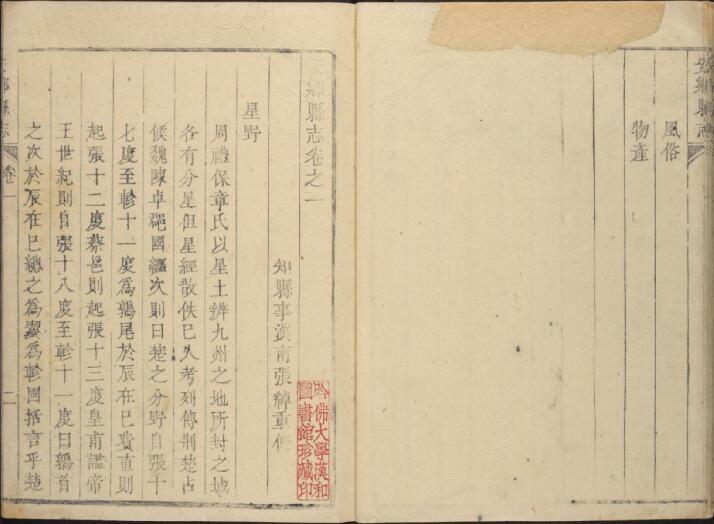 安鄉縣志
風俗
物產
安鄉縣志卷之一
知縣事滇南張綽重修
星野
周禮保章氏以星土辨九州之地所封之域
各有分星但星經散佚已久考列傳荆楚占
候魏陳卓郡國纏次則曰楚之分野自張十
七度至軫十一度爲鶉尾於辰在巳費直則
起張十二度蔡邕則起張十三度皇甫謐帝
王世紀則自張十八度至軫十一度曰鶉首
之次於辰在巳總之爲翼爲軫固括言乎楚
安鄉縣志
卷一
二
哈佛大學漢和
圖書館珍藏印